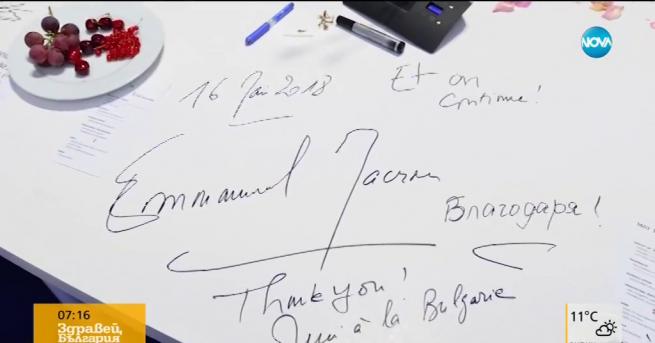 NOVA
16 Mai 2018
Et on
continue!
Emmanuel Macron
Благодаря!
Thank you!
à la Bulgarie
07:16
Здравей,
България
11°C